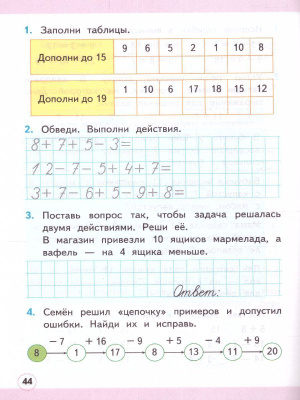 1. Заполни таблицы.
Дополни до 15 9 6 5 2 1 10 8
Дополни до 19 1 10 6 17 18 15 12
2. Обведи. Выполни действия.
8+7+5-3=
12-7-5+4+7=
3+7-6+5-9+8=
3. Поставь вопрос так, чтобы задача решалась
двумя действиями. Реши её.
В магазин привезли 10 ящиков мармелада, а
вафель — на 4 ящика меньше.
Ответ:
4. Семён решил «цепочку» примеров и допустил
ошибки. Найди их и исправь.
- 7 + 16 - 9 + 5 - 4 + 9
8 1 17 8 13 11 20
44